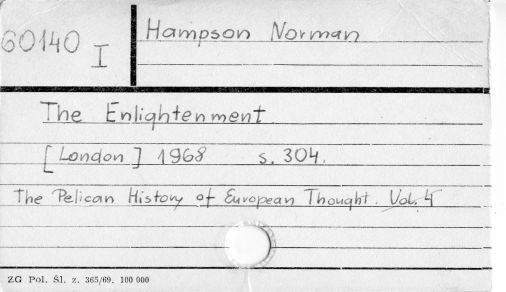 60140 I
Hampson Norman
The Enlightenment
[London] 1968 s. 304.
The Pelican History of European Thought. Vol. 4
ZG Pol. Śl. z. 365/69. 100 000